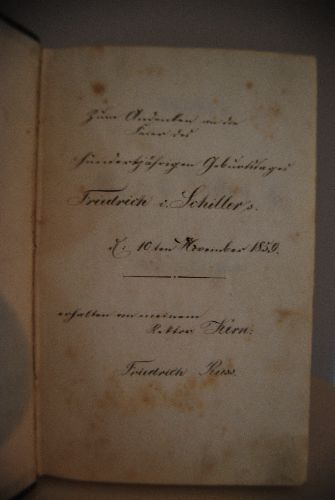 Zum Andenken an die
Feier des
hundertjährigen Geburtstages
Friedrich v. Schiller's.
d. 10ten November 1859.
erhalten von meinem
Rektor Kern.
Friedrich Russ.